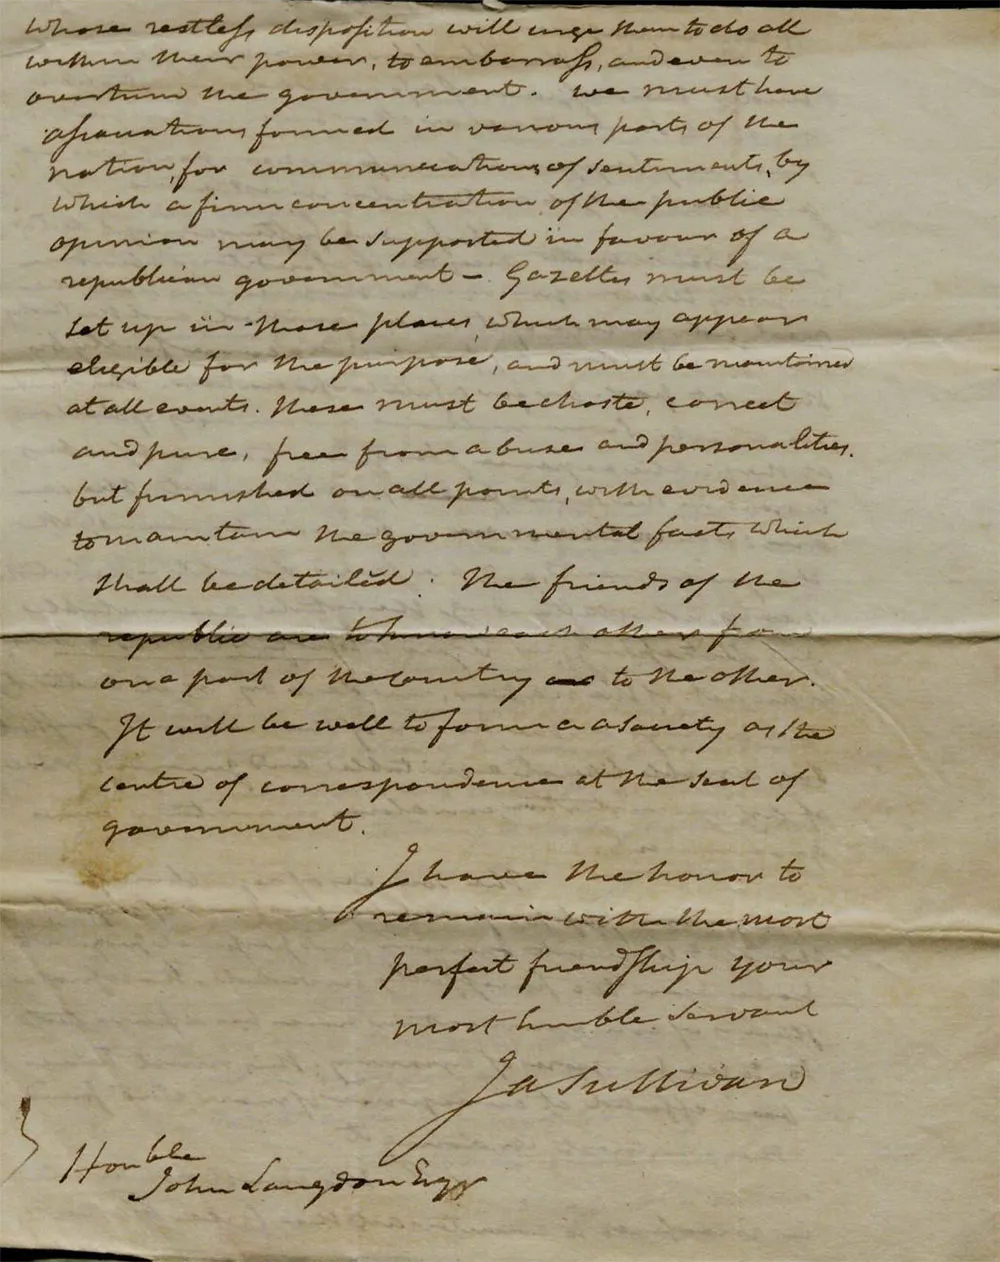 whose restless disposition will urge them to do all
within their power, to embarrass, and even to
overturn the government. we must have
associations formed in various parts of the
nation, for communications of sentiments, by
which a firm concentration of the public
opinion may be supported in favour of a
republican government – Gazettes must be
set up in those places which may appear
eligible for the purpose, and must be maintained
at all events. these must be chaste, correct
and pure, free from abuse and personalities.
but furnished on all points, with evidence
to maintain the governmental facts which
shall be detailed. The friends of the
republic are to know each other from
one part of the country to the other.
It will be well to form a society as the
centre of correspondence at the seat of
government.
I have the honor to
remain with the most
perfect friendship your
most humble servant
Ja Sullivan
Honble
John Langdon Esqr